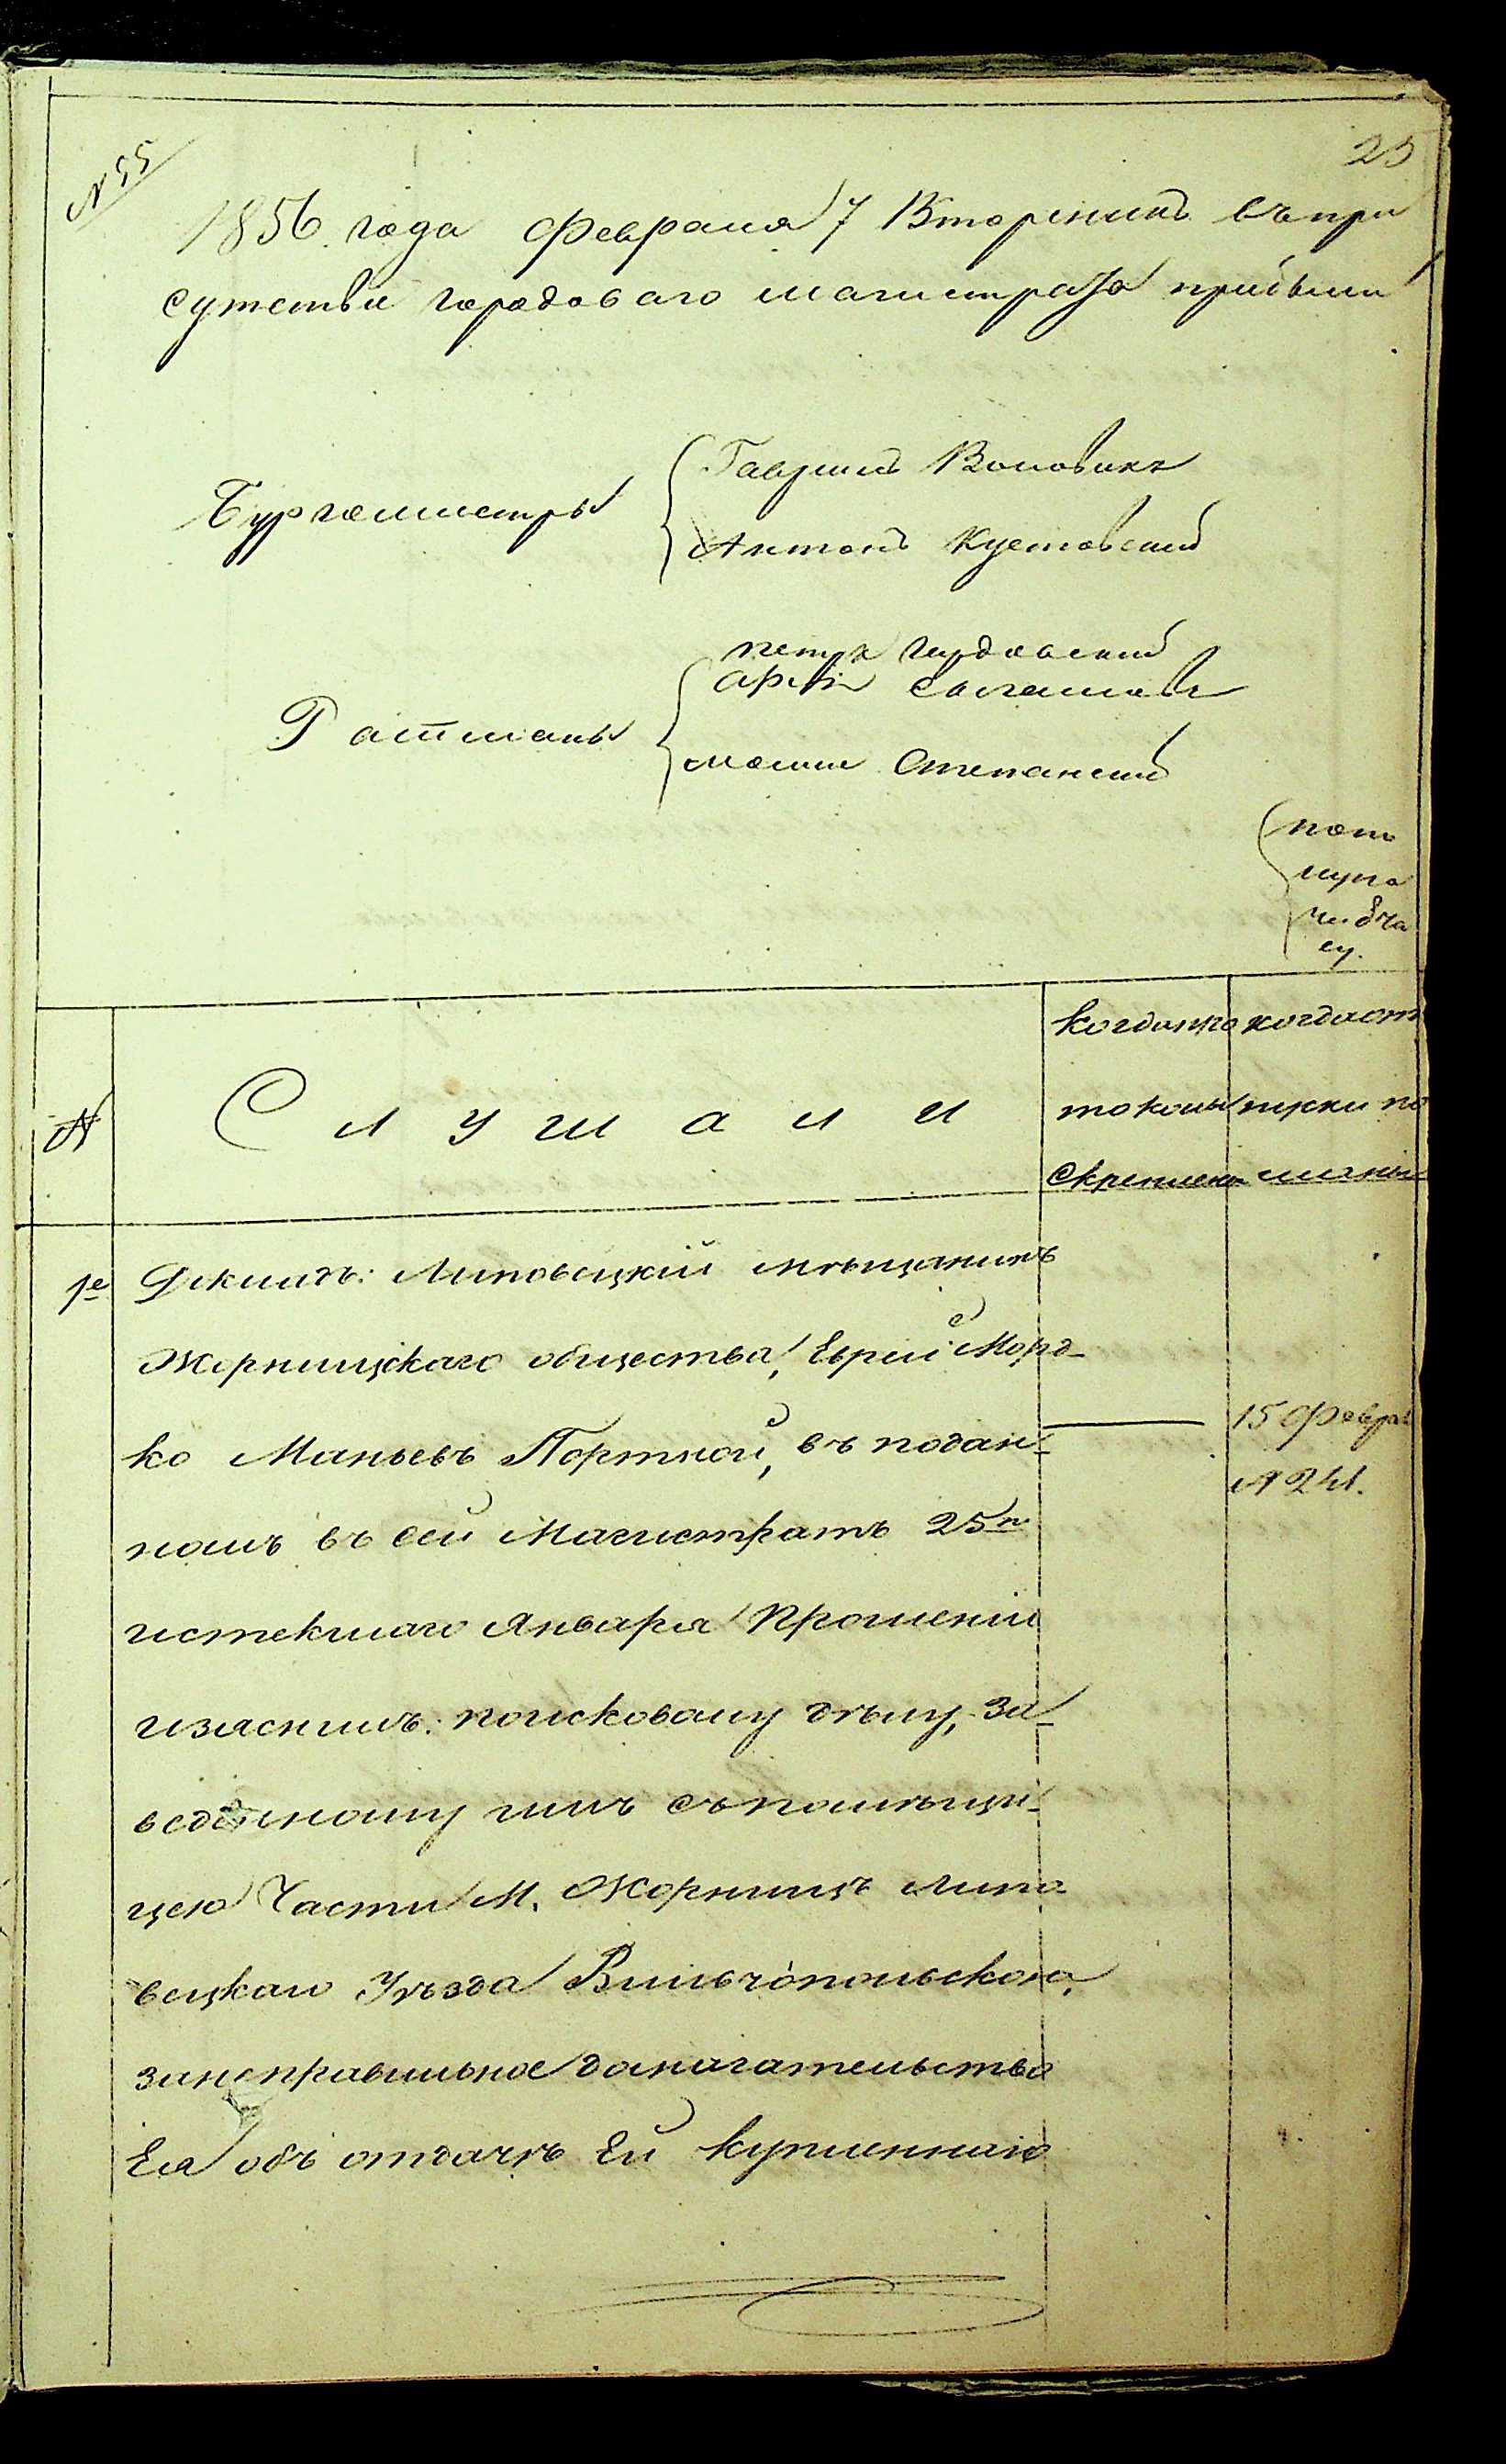 N 55
25
1856 года Февраля 7 Вторникъ въ при
сутствіе городоваго магистрата прибыли
Бургомистры
Гаврилъ Воловикъ
Антонъ Кустовский
Ратманы
петръ
мошко Степанский
по
лу
N
Слушали
когда про
токолы
скреплены
когда от
пуски по
сланы
1е
Докладъ: Липовецкій мѣщанинъ
Жорницскаго общества, Еврей Морд-
ко Маньевъ Портной, въ подан-
номъ въ сей Магистратъ 25го
истекшаго Января Прошеніи
изяснилъ: по исковому дѣлу, за-
веденному имъ съ помѣщи-
цею Части М. Жорнищъ Липо-
вецкаго Уѣзда Вильчопольскою,
за неправильное домогательство
Ея объ отдачѣ Ей купленнаго
15 Февраля
N 241.